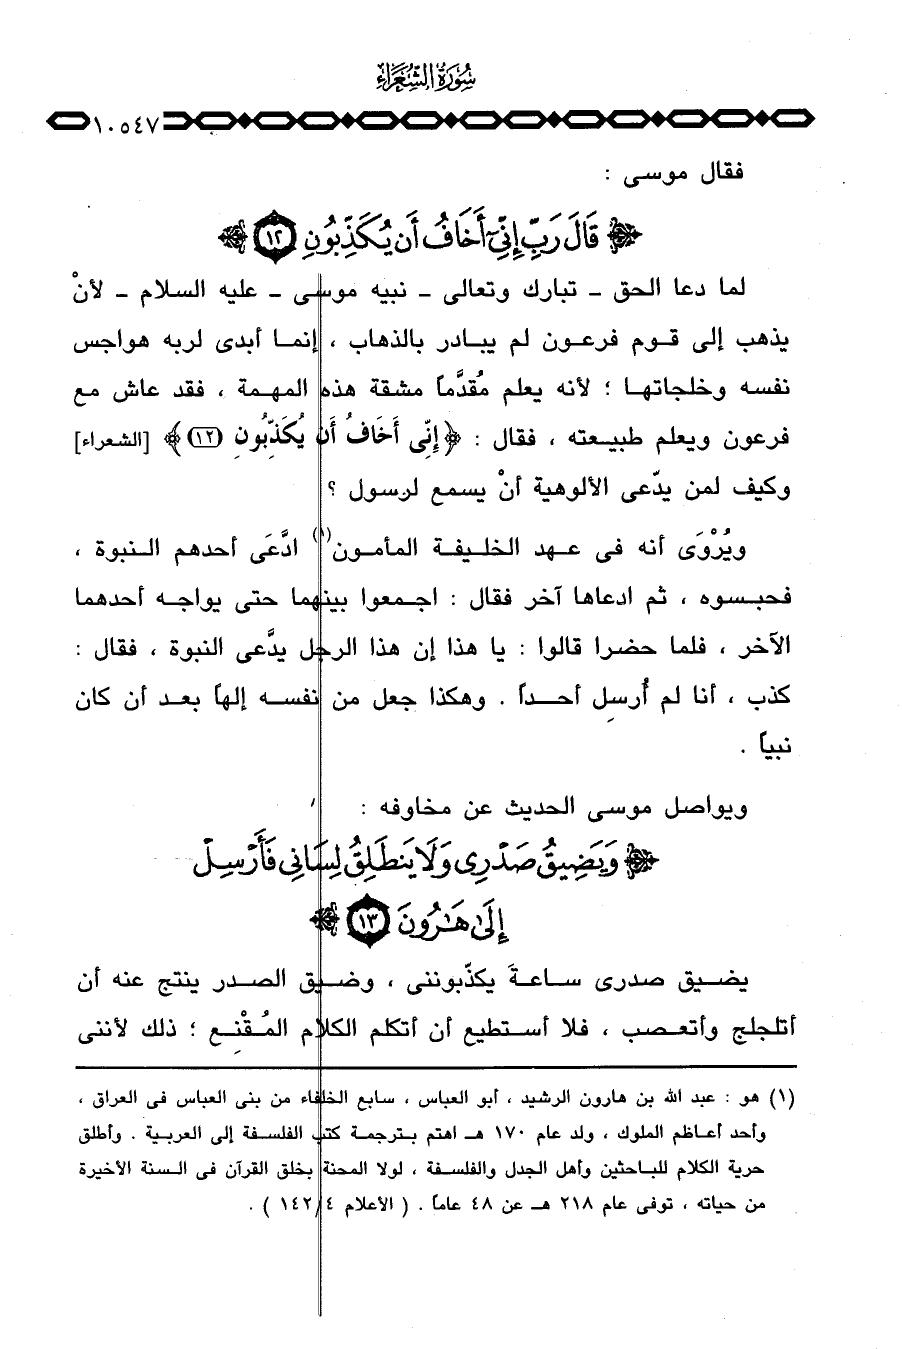 سُورَةُ الشُّعَرَاءِ
١٠٥٤٧
فقال موسى :
﴿ قَالَ رَبِّ إِنِّىٓ أَخَافُ أَن يُكَذِّبُونِ ١٢ ﴾
لما دعا الحق - تبارك وتعالى - نبيه موسى - عليه السلام - لأنْ
يذهب إلى قوم فرعون لم يبادر بالذهاب ، إنما أبدى لربه هواجس
نفسه وخلجاتها ؛ لأنه يعلم مُقدَّماً مشقة هذه المهمة ، فقد عاش مع
فرعون ويعلم طبيعته ، فقال : ﴿ إِنِّى أَخَافُ أَن يُكَذِّبُونِ (١٢) ﴾ [الشعراء]
وكيف لمن يدّعى الألوهية أنْ يسمع لرسول ؟
ويُرْوَى أنه فى عهد الخليفة المأمون(١) ادَّعَى أحدهم النبوة ،
فحبسوه ، ثم ادعاها آخر فقال : اجمعوا بينهما حتى يواجه أحدهما
الآخر ، فلما حضرا قالوا : يا هذا إن هذا الرجل يدَّعى النبوة ، فقال :
كذب ، أنا لم أُرسِل أحداً . وهكذا جعل من نفسه إلهاً بعد أن كان
نبياً .
ويواصل موسى الحديث عن مخاوفه :
﴿ وَيَضِيقُ صَدْرِى وَلَا يَنطَلِقُ لِسَانِى فَأَرْسِلْ
إِلَىٰ هَـٰرُونَ ١٣ ﴾
يضيق صدرى ساعةَ يكذّبوننى ، وضيق الصدر ينتج عنه أن
أتلجلج وأتعصب ، فلا أستطيع أن أتكلم الكلام المُقْنِع ؛ ذلك لأننى
(١) هو : عبد الله بن هارون الرشيد ، أبو العباس ، سابع الخلفاء من بنى العباس فى العراق ،
وأحد أعاظم الملوك ، ولد عام ١٧٠ هـ اهتم بترجمة كتب الفلسفة إلى العربية . وأطلق
حرية الكلام للباحثين وأهل الجدل والفلسفة ، لولا المحنة بخلق القرآن فى السنة الأخيرة
من حياته ، توفى عام ٢١٨ هـ عن ٤٨ عاماً . ( الأعلام ١٤٢/٤ ) .